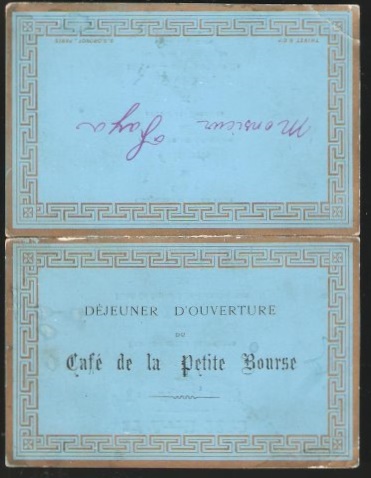 Monsieur Laya
DÉJEUNER D'OUVERTURE
DU
Café de la Petite Bourse